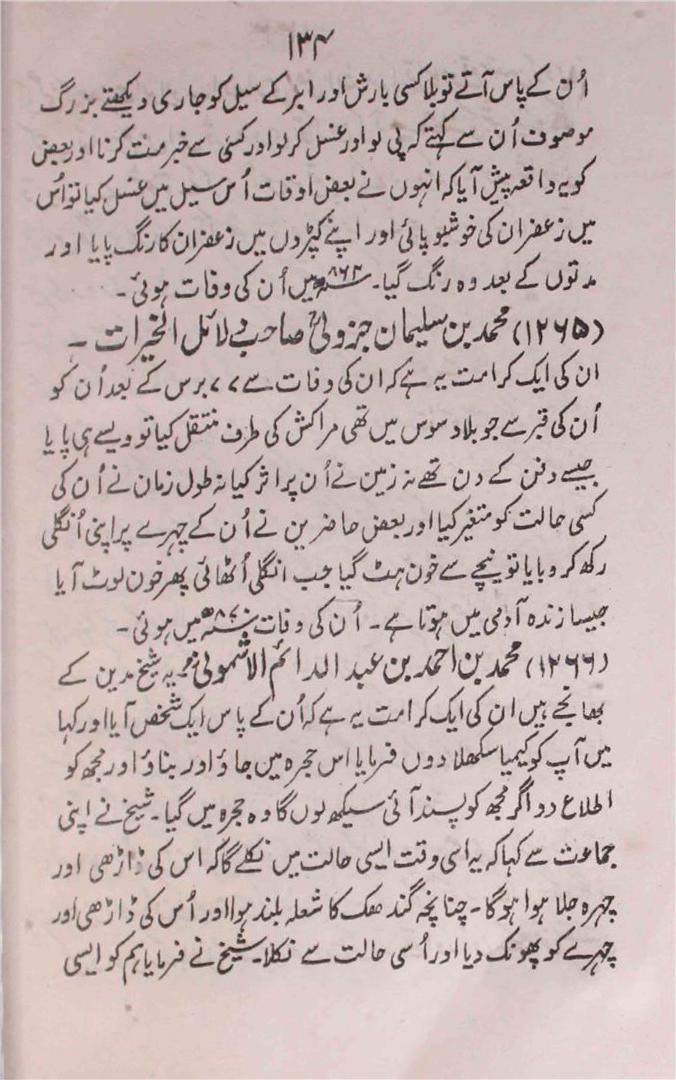 ۱۳۴
اُن کے پاس آتے تو بلا کسی بارش اور ابر کے سیل کو جاری دیکھتے بزرگ
موصوف اُن سے کہتے کہ پی لو اور غسل کر لو اور کسی سے خبر مت کرنا اور بعض
کو یہ واقعہ پیش آیا کہ انہوں نے بعض اوقات اُس سیل میں غسل کیا تو اُس
میں زعفران کی خوشبو پائی اور اپنے کپڑوں میں زعفران کا رنگ پایا اور
مدتوں کے بعد وہ رنگ گیا۔ ۸۶۲ھ میں اُن کی وفات ہوئی۔
(۱۲۶۵) محمد بن سلیمان جزولیؒ صاحب دلائل الخیرات۔
ان کی ایک کرامت یہ ہے کہ ان کی وفات سے ۷۷ برس کے بعد اُن کو
اُن کی قبر سے جو بلاد سوس میں تھی مراکش کی طرف منتقل کیا تو ویسے ہی پایا
جیسے دفن کے دن تھے نہ زمین نے اُن پر اثر کیا نہ طول زمان نے اُن کی
کسی حالت کو متغیر کیا اور بعض حاضرین نے اُن کے چہرے پر اپنی اُنگلی
رکھ کر دبایا تو نیچے سے خون ہٹ گیا جب انگلی اُٹھائی پھر خون لوٹ آیا
جیسا زندہ آدمی میں ہوتا ہے۔ اُن کی وفات ۸۷۰ھ میں ہوئی۔
(۱۲۶۶) محمد بن احمد بن عبد الدائم الاشمونیؒ یہ شیخ مدین کے
بھانجے ہیں ان کی ایک کرامت یہ ہے کہ اُن کے پاس ایک شخص آیا اور کہا
میں آپ کو کیمیا سکھلا دوں فرمایا اس حجرہ میں جاؤ اور بناؤ اور مجھ کو
اطلاع دو اگر مجھ کو پسند آئی سیکھ لوں گا وہ حجرہ میں گیا۔ شیخ نے اپنی
جماعت سے کہا کہ یہ اسی وقت ایسی حالت میں نکلے گا کہ اس کی ڈاڑھی اور
چہرہ جلا ہوا ہوگا۔ چنانچہ گندھک کا شعلہ بلند ہوا اور اُس کی ڈاڑھی اور
چہرے کو پھونک دیا اور اُسی حالت سے نکلا۔ شیخ نے فرمایا ہم کو ایسی